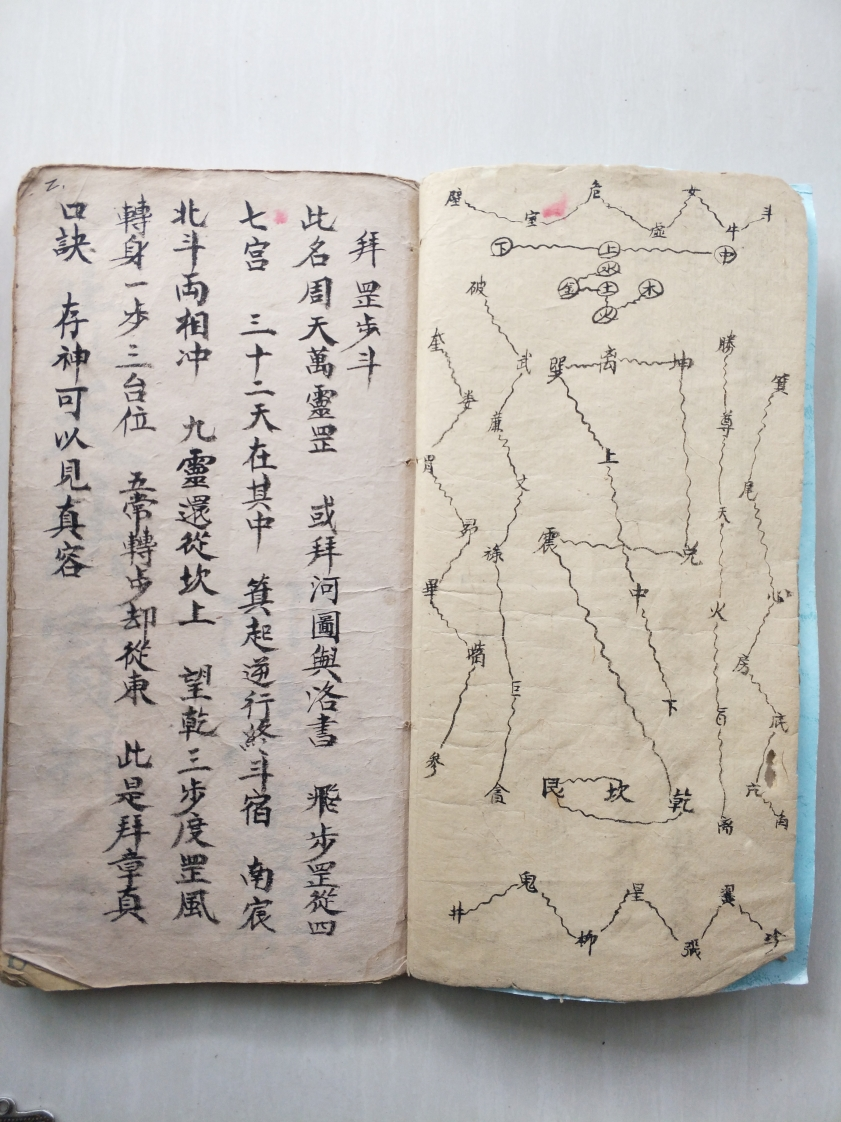 拜罡步斗
此名周天萬靈罡 或拜河圖與洛書 飛步罡從四
七宮 三十二天在其中 箕起逆行終斗宿 南宸
北斗両相冲 九靈還從坎上 望乾三步度罡風
轉身一步三台位 五常轉步却從東 此是拜章真
口訣 存神可以見真容
壁 室 危 虛 女 牛 斗
下 上 中
水
金 土 木
火
奎 婁 胃 昴 畢 嘴 參
破 武 廉 文 祿 巨 貪
巽 离 坤
上 中 下
震 兌
艮 坎 乾
勝 尊 天 火
箕 尾 心 房 底 亢 角
井 鬼 柳 星 張 翼 珍